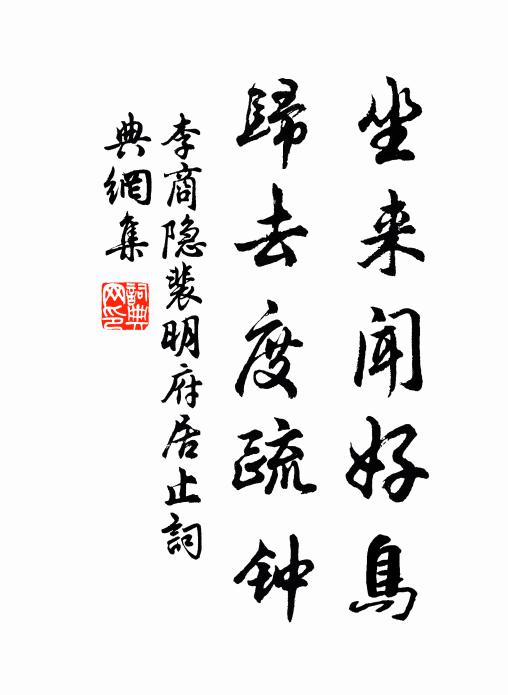 坐来闻好鳥
歸去度疏钟
李商隐裴明府居止詞
典網集
詞典
网印